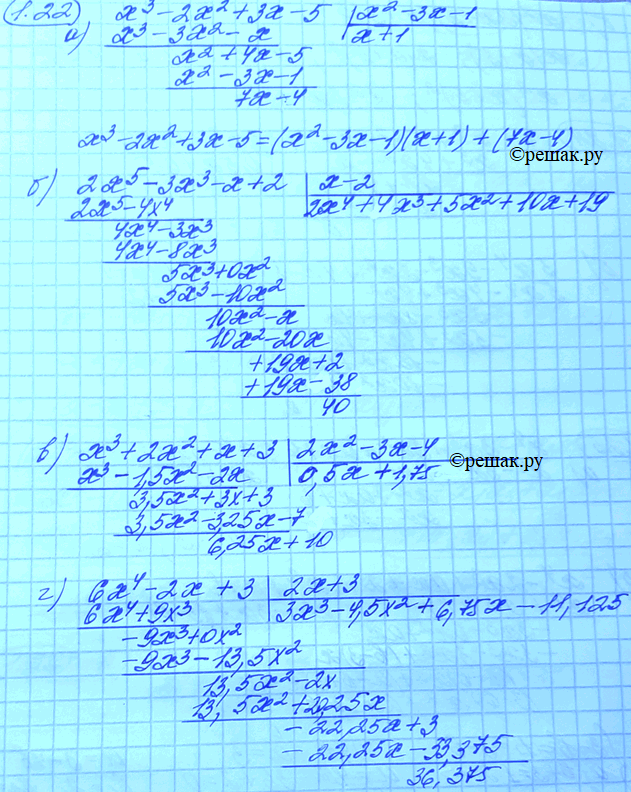 1.22)
а) x³ - 2x² + 3x - 5 | x² - 3x - 1
x³ - 3x² - x | x + 1
x² + 4x - 5
x² - 3x - 1
7x - 4
x³ - 2x² + 3x - 5 = (x² - 3x - 1)(x + 1) + (7x - 4)
©решак.ру
б) 2x⁵ - 3x³ - x + 2 | x - 2
2x⁵ - 4x⁴ | 2x⁴ + 4x³ + 5x² + 10x + 19
4x⁴ - 3x³
4x⁴ - 8x³
5x³ + 0x²
5x³ - 10x²
10x² - x
10x² - 20x
+19x + 2
+19x - 38
40
в) x³ + 2x² + x + 3 | 2x² - 3x - 4
x³ - 1,5x² - 2x | 0,5x + 1,75
©решак.ру
3,5x² + 3x + 3
3,5x² - 3,25x - 7
6,25x + 10
г) 6x⁴ - 2x + 3 | 2x + 3
6x⁴ + 9x³ | 3x³ - 4,5x² + 6,75x - 11,125
-9x³ + 0x²
-9x³ - 13,5x²
13,5x² - 2x
13,5x² + 20,25x
- 22,25x + 3
- 22,25x - 33,375
36,375